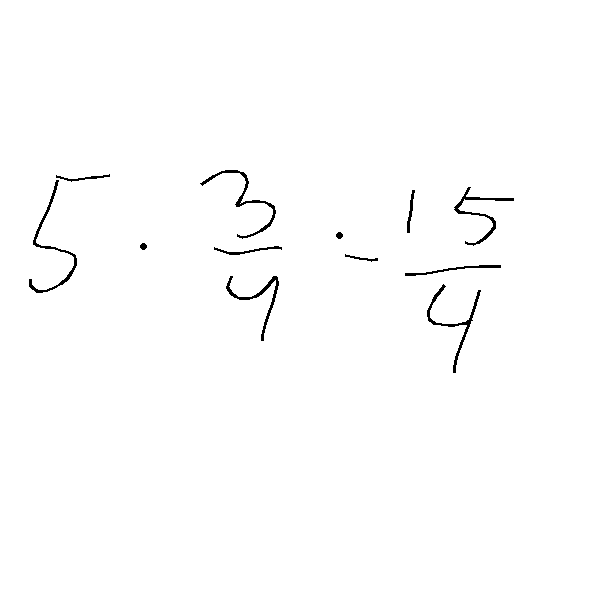 5 · 3/4 = 15/4